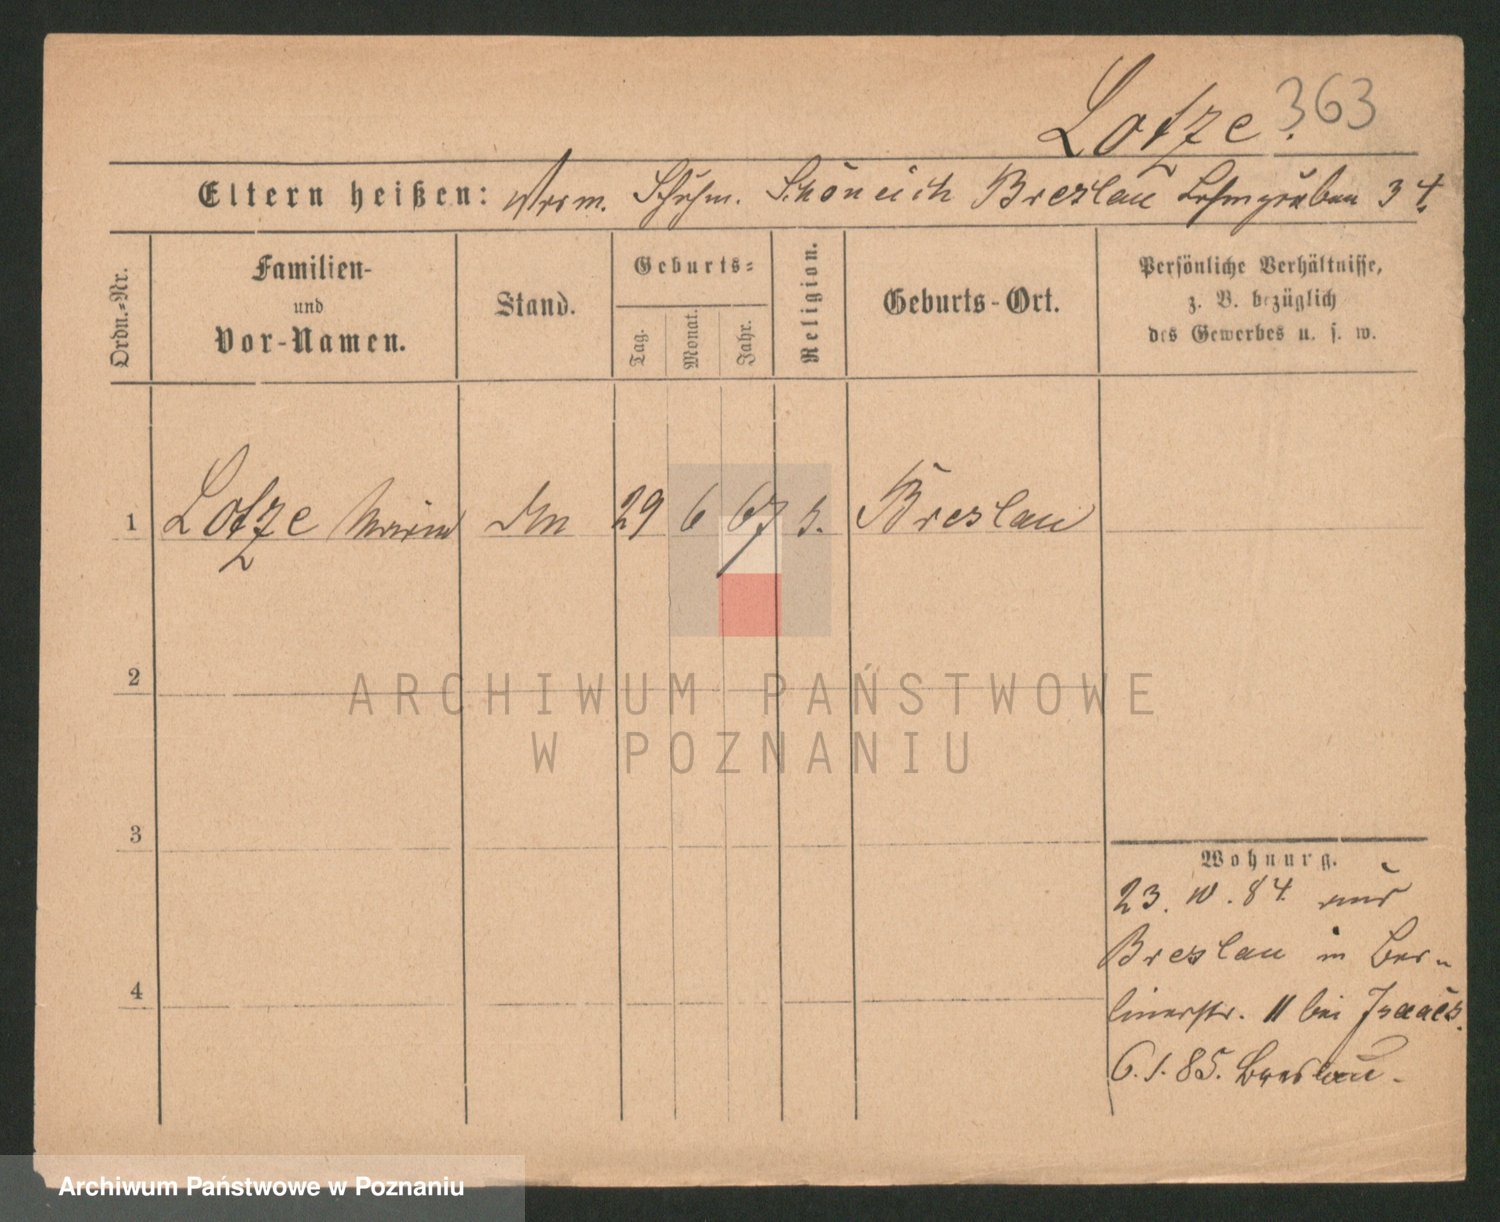 Lotze. 363
Eltern heißen: Vorm. Schuhm. Schöneich Breslau Lehmgruben 34.
Ordn.-Nr.
Familien-
und
Vor-Namen.
Stand.
Geburts-
Tag.
Monat.
Jahr.
Religion.
Geburts-Ort.
Persönliche Verhältnisse,
z. B. bezüglich
des Gewerbes u. s. w.
1 Lotze 29 6 67 Breslau
2
3
4
Wohnung.
23. 10. 84. aus
Breslau in Ber-
linerstr. 11 bei Isaacs.
6. 1. 85. Breslau.
ARCHIWUM PAŃSTWOWE
W POZNANIU
Archiwum Państwowe w Poznaniu